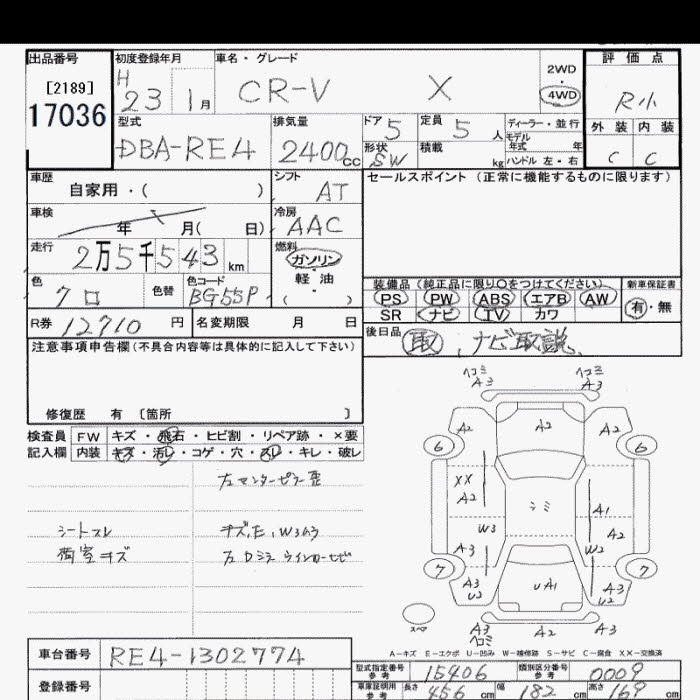 出品番号 初度登録年月 車名・グレード 評価点
[2189] H 2WD
17036 23 1月 CR-V X 4WD R小
型式 排気量 ドア 定員 ディーラー・並行 外装 内装
DBA-RE4 2400cc 5 5人 モデル年式 年 C C
形状 SW 積載 kg ハンドル 左・右
車歴 シフト セールスポイント (正常に機能するものに限ります)
自家用・( ) AT
車検 冷房
年 月( 日) AAC
走行 燃料
2万5千543km ガソリン
軽・油
色 色替 色コード ( )
クロ BG55P
装備品 (純正品に限り○をつけてください) 新車保証書
PS PW ABS エアB AW 有・無
SR ナビ TV カワ
R券 12710円 名変期限 月 日
後日品
取、ナビ取説
注意事項申告欄(不具合内容等は具体的に記入して下さい)
修復歴 有 〔箇所 〕
検査員 FW キズ・飛石・ヒビ割・リペア跡・×要
記入欄 内装 キズ・汚レ・コゲ・穴・スレ・キレ・破レ
左センターピラー歪
シートスレ キズ、E、W3ムラ
荷室キズ 左Dミラーウインカーヒビ
ヘコミ ヘコミ
A3 A3
A2 A2 A2
6 6
XX
A2 ミミ A1
W3 A2
A3 W2
7 7
A3 UA1 A3
U2 U2
スペア
A3 A2 A3
ヘコミ
A-キズ E-エクボ U-凹み W-補修跡 S-サビ C-腐食 XX-交換済
車台番号 RE4-1302774
型式指定番号 参考 15406 類別区分番号 参考 0009
登録番号
車庫証明用 参考 長さ 456cm 幅 182cm 高さ 169cm